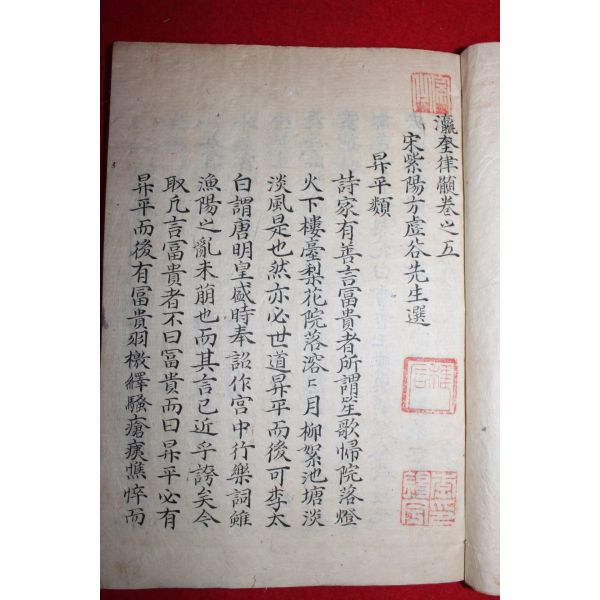 瀛奎律髓卷之五
宋紫陽方虛谷先生選
昇平類
詩家有善言富貴者所謂笙歌歸院落燈
火下樓臺梨花院落溶〻月柳絮池塘淡
淡風是也然亦必世道昇平而後可李太
白謂唐明皇盛時奉詔作宮中行樂詞雖
漁陽之亂未萠也而其言已近乎誇矣今
取凢言冨貴者不曰冨貴而曰昇平必有
昇平而後有冨貴羽檄繹騷瘡痍憔悴而